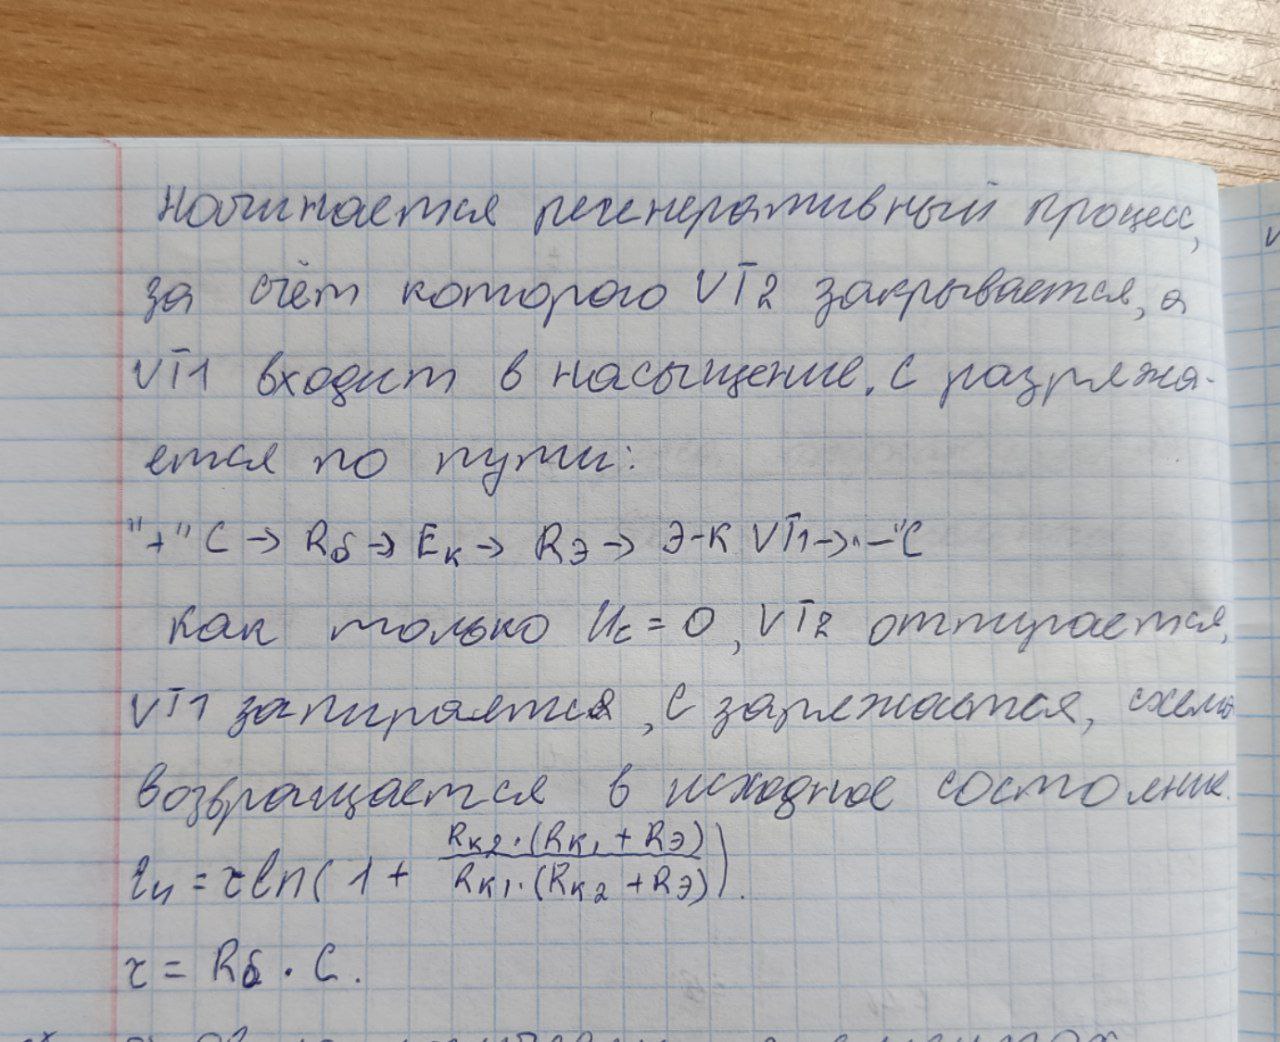 Начинается регенеративный процесс,
за счёт которого VT2 закрывается, а
VT1 входит в насыщение. С разряжа-
ется по пути:
"+" C → Rб → Eк → Rэ → Э-К VT1 → "–" C
как только Uc = 0, VT2 отпирается,
VT1 запирается, С заряжается, схема
возвращается в исходное состояние.
tи = τ ln(1 + Rк2·(Rк1 + Rэ) / Rк1·(Rк2 + Rэ)).
τ = Rб · C.